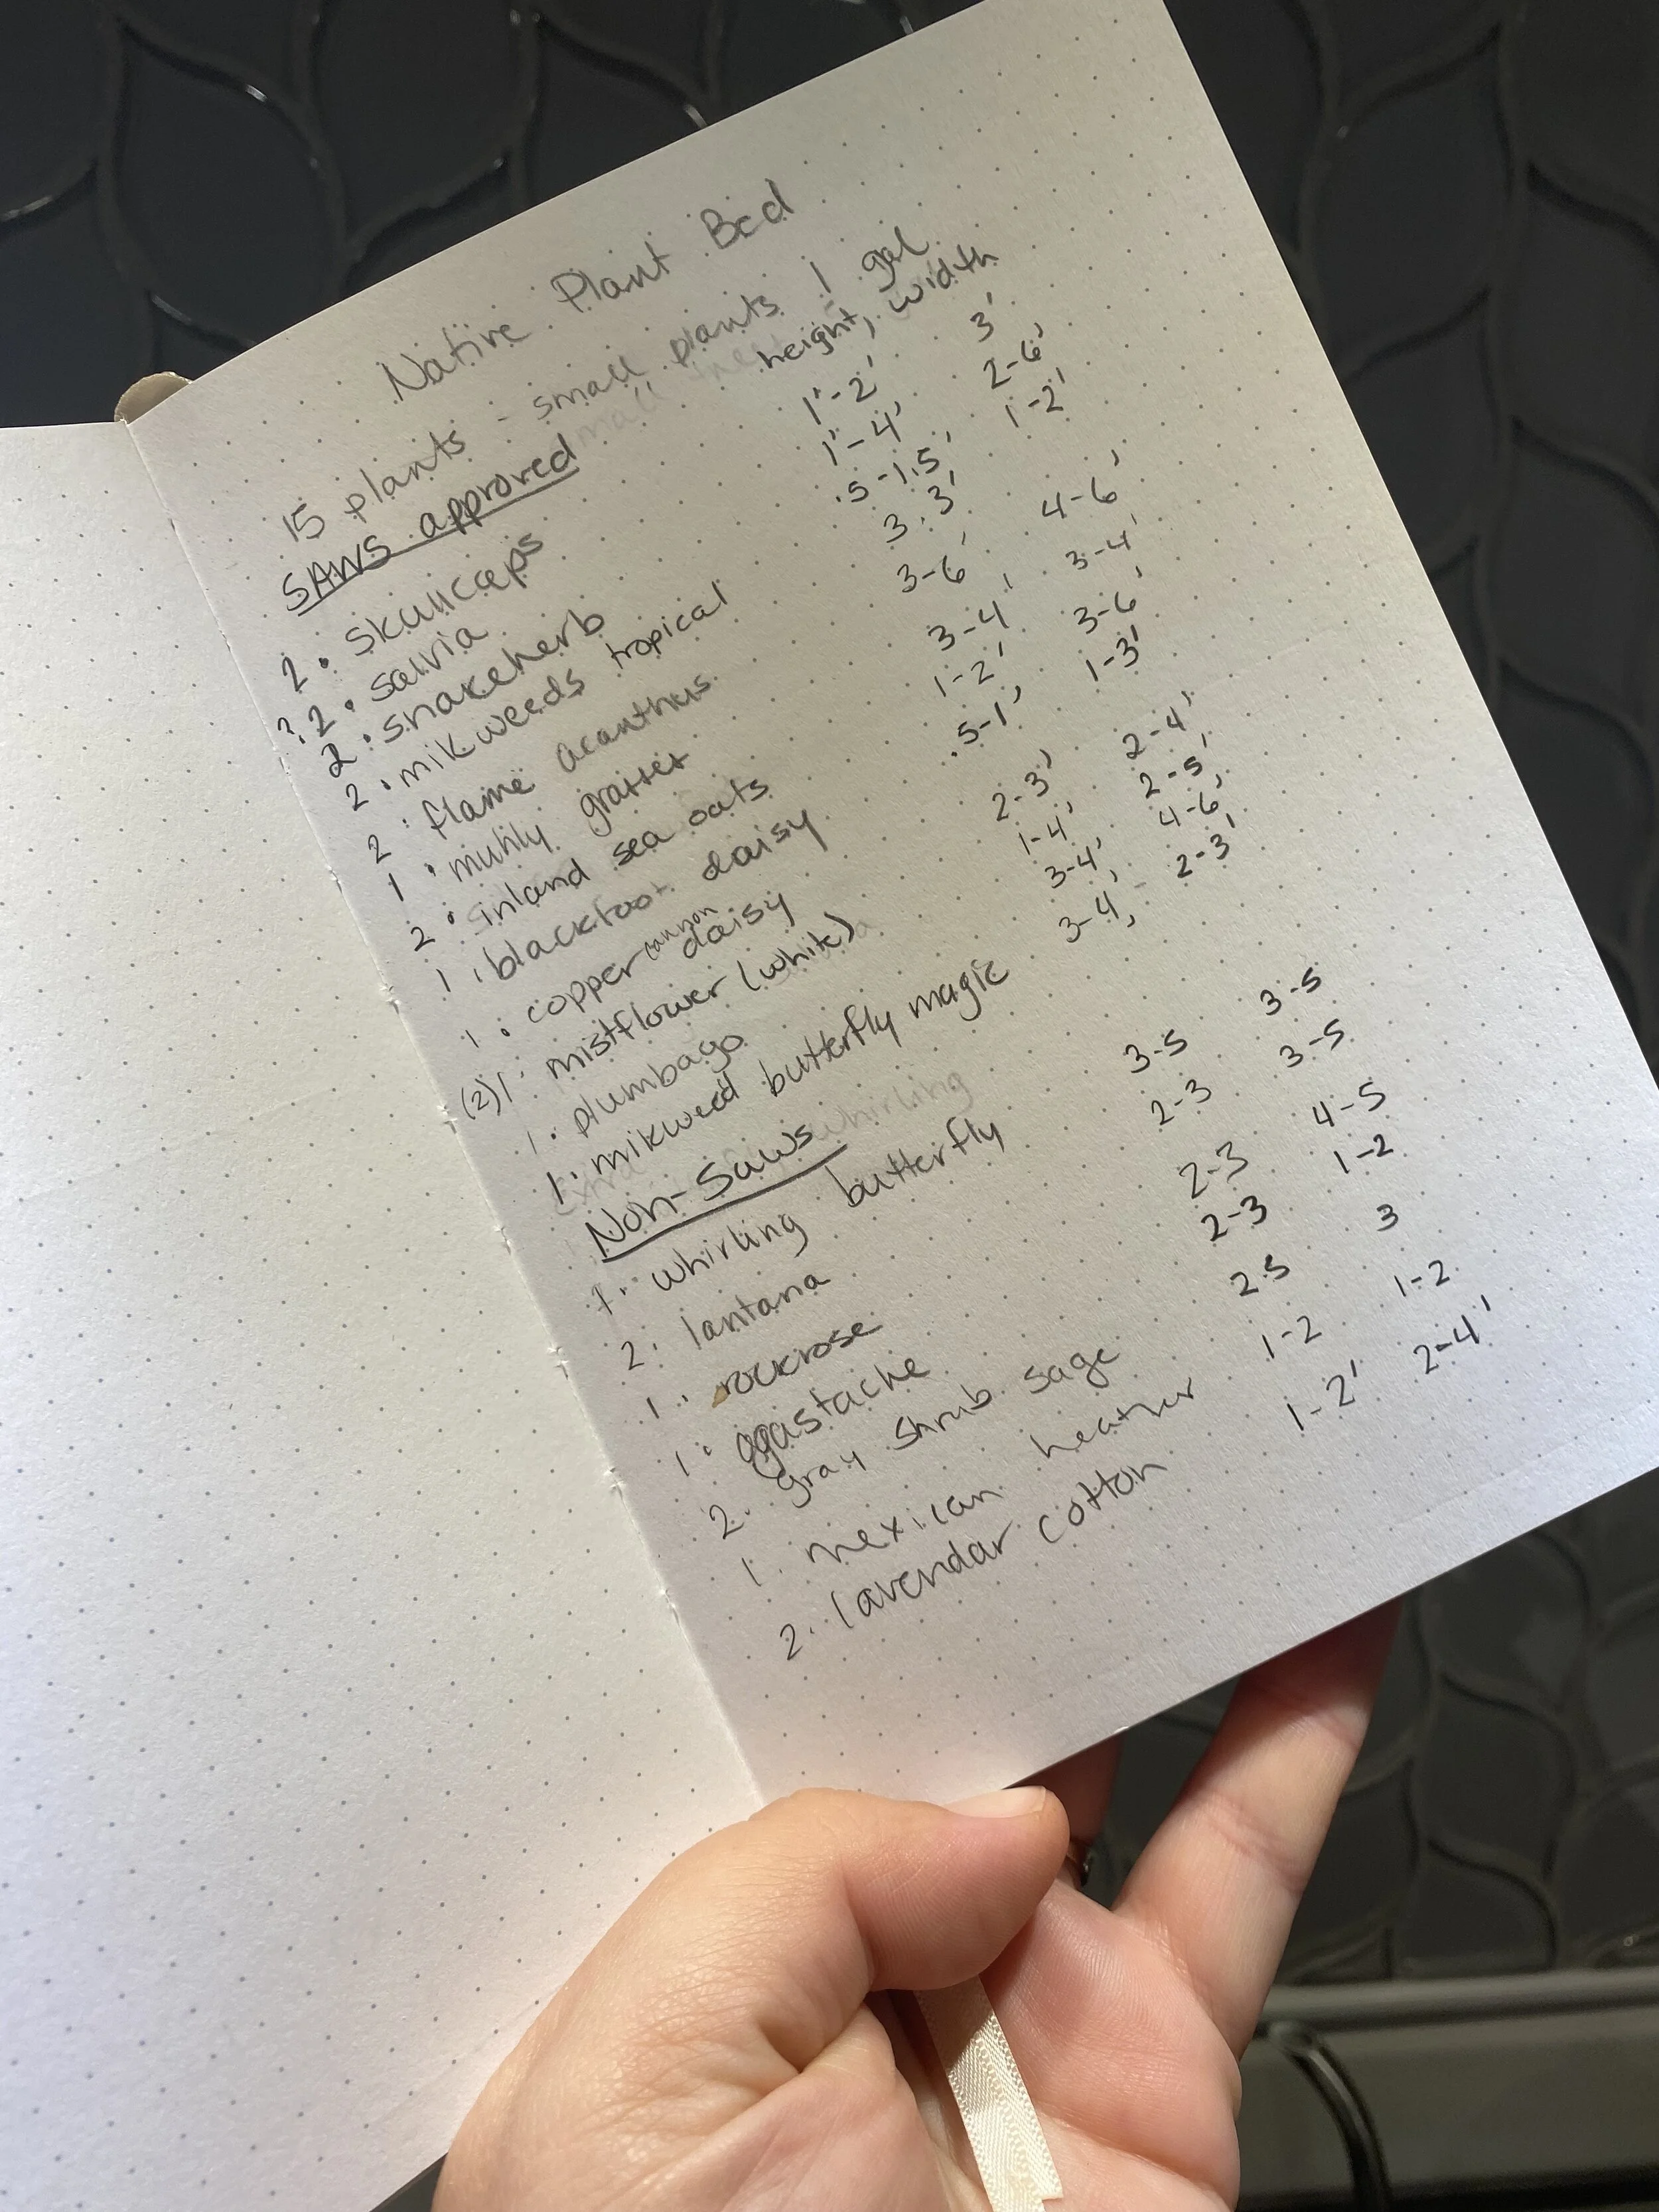 Native Plant Bed
15 plants - small plants 1 gal
SAWS approved height, width
2 · skullcaps 1'-2' 3'
? 2 · salvia 1'-4' 2-6'
2 · snakeherb .5-1.5' 1-2'
2 · mikweeds tropical 3 · 3'
2 · flame acanthus 3-6' 4-6'
1 · muhly grasses 3-4' 3-4'
2 · inland sea oats 1-2' 3-6'
1 · blackfoot daisy .5-1' 1-3'
1 · copper canyon daisy 2-3' 2-4'
(2) 1 · mistflower (white) 1-4' 2-5'
1 · plumbago 3-4' 4-6'
1 · mikweed butterfly magic 3-4' 2-3'
Non-Saws
1 · whirling butterfly 3-5 3-5
2 · lantana 2-3 3-5
1 · rockrose 2-3 4-5
1 · agastache 2-3 1-2
2 · gray shrub sage 2.5 3
1 · mexican heather 1-2 1-2
2 · lavendar cotton 1-2' 2-4'